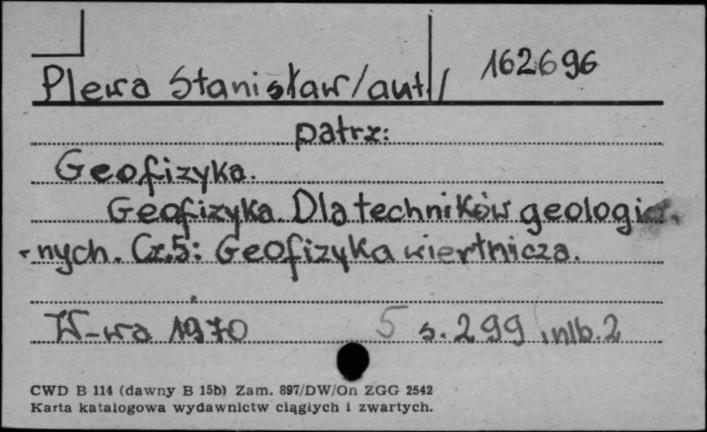 Plewa Stanisław/aut./ 162696
patrz:
Geofizyka.
Geofizyka. Dla techników geologicz-
-nych. Cz.5: Geofizyka wiertnicza.
W-wa 1970 5 s. 299 inlb. 2
CWD B 114 (dawny B 15b) Zam. 897/DW/On ZGG 2542
Karta katalogowa wydawnictw ciągłych i zwartych.